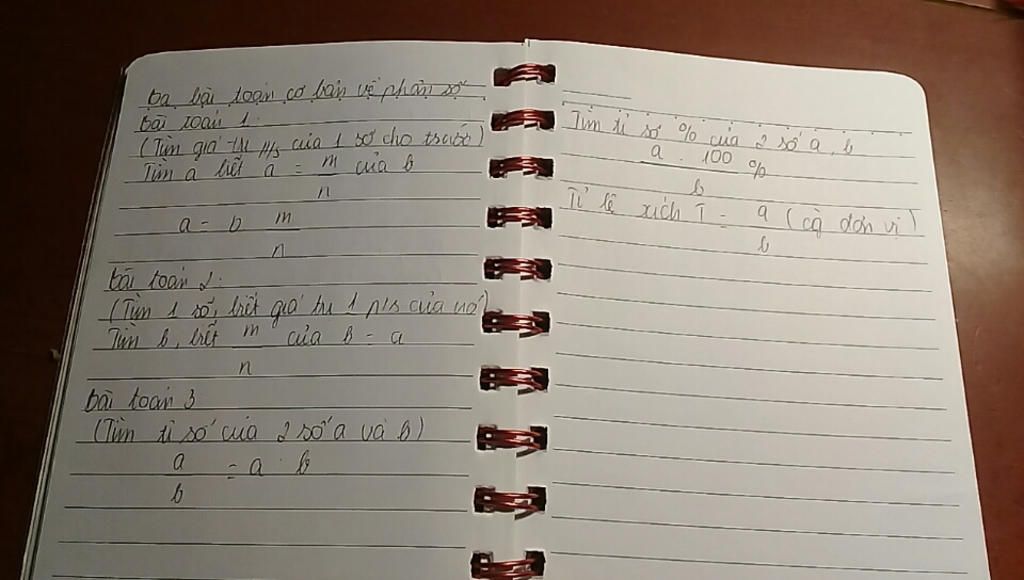 Ba bài toán cơ bản về phân số
Bài toán 1:
(Tìm giá trị p/s của 1 số cho trước)
Tìm a biết a = m/n của b
a = b m/n
Bài toán 2:
(Tìm 1 số, biết giá trị 1 p/s của nó)
Tìm b, biết m/n của b = a
Bài toán 3
(Tìm tỉ số của 2 số a và b)
a/b = a : b
Tìm tỉ số % của 2 số a, b
a . 100/b %
Tỉ lệ xích T = a/b (cq đơn vị)